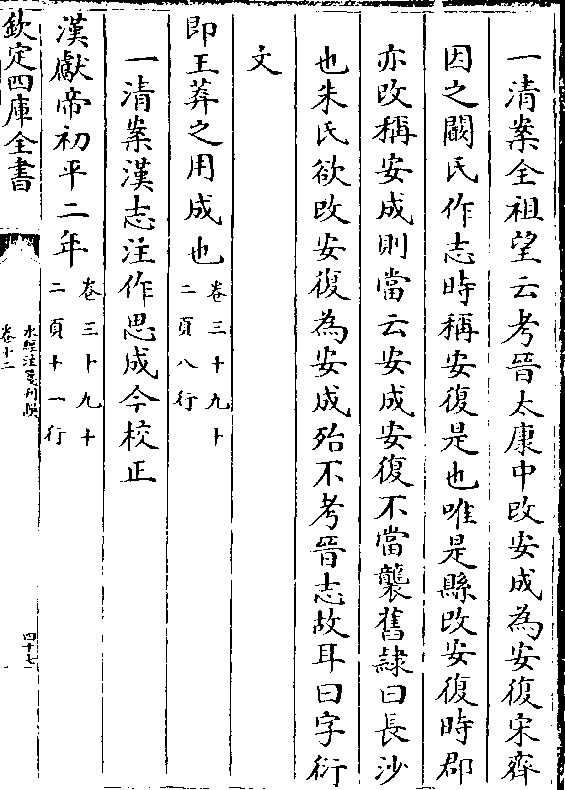 一清案全祖望云考晉太康中改安成為安復宋齊
因之闞氏作志時稱安復是也唯是縣改安復時郡
亦改稱安成則當云安成安復不當襲舊隷曰長沙
也朱氏欲改安復為安成殆不考晉志故耳曰字衍
文
即王莽之用成也
卷三十九十
二頁八行
一清案漢志注作思成今校正
漢獻帝初平二年
卷三十九十
二頁十一行
欽定四庫全書
水經注箋刋誤
卷十二
四十七